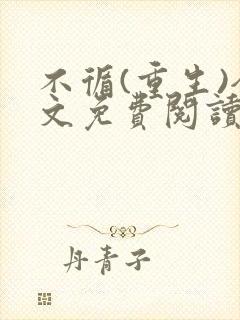 不循(重生)
文免費閱讀
丹青子